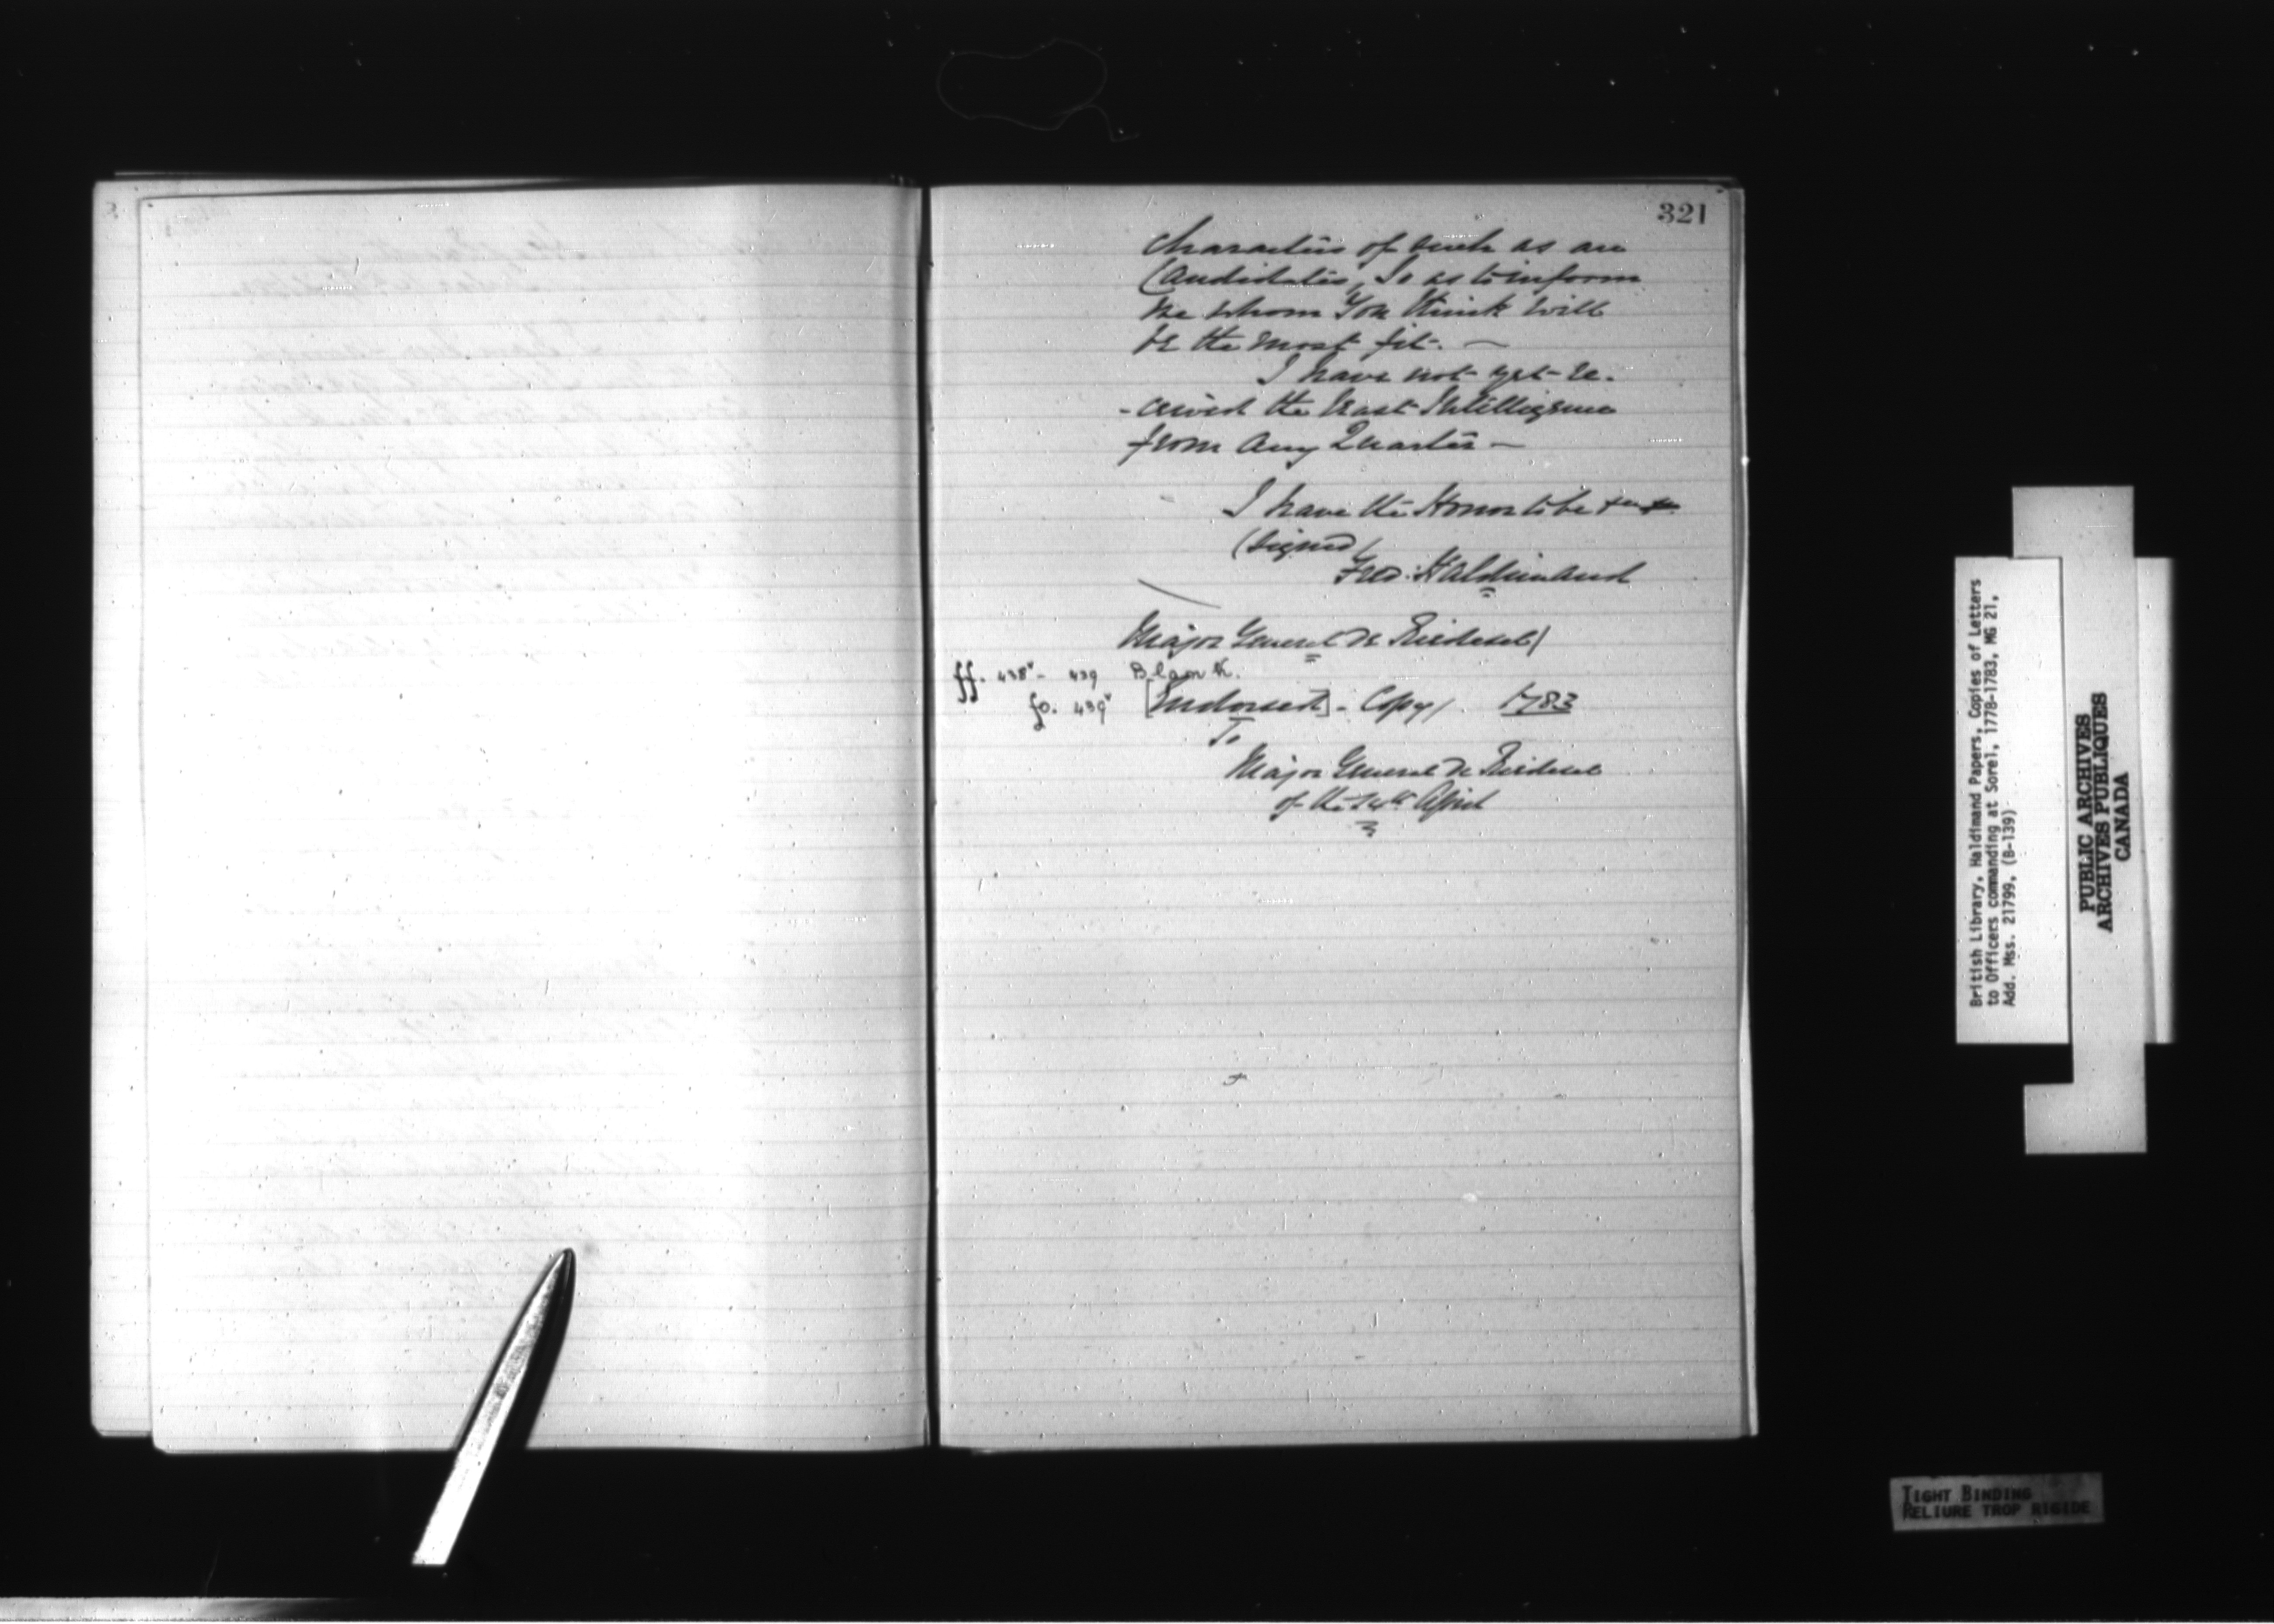 321
Characters of such as are
Candidates, So as to inform
me whom You think will
be the most fit. —
I have not yet re-
-ceived the least Intelligence
from any Quarter —
I have the Honor to be &c &c
(Signed)
Fred: Haldimand
Major General De Riedesel)
ff. 438v - 439 Blank.
fo. 439v [Endorsed] - Copy/. 1783
To
Major General De Riedesel
of the 14th April
British Library, Haldimand Papers, Copies of Letters
to Officers commanding at Sorel, 1778-1783, MG 21,
Add. Mss. 21799, (B-139)
PUBLIC ARCHIVES
ARCHIVES PUBLIQUES
CANADA
TIGHT BINDING
RELIURE TROP RIGIDE